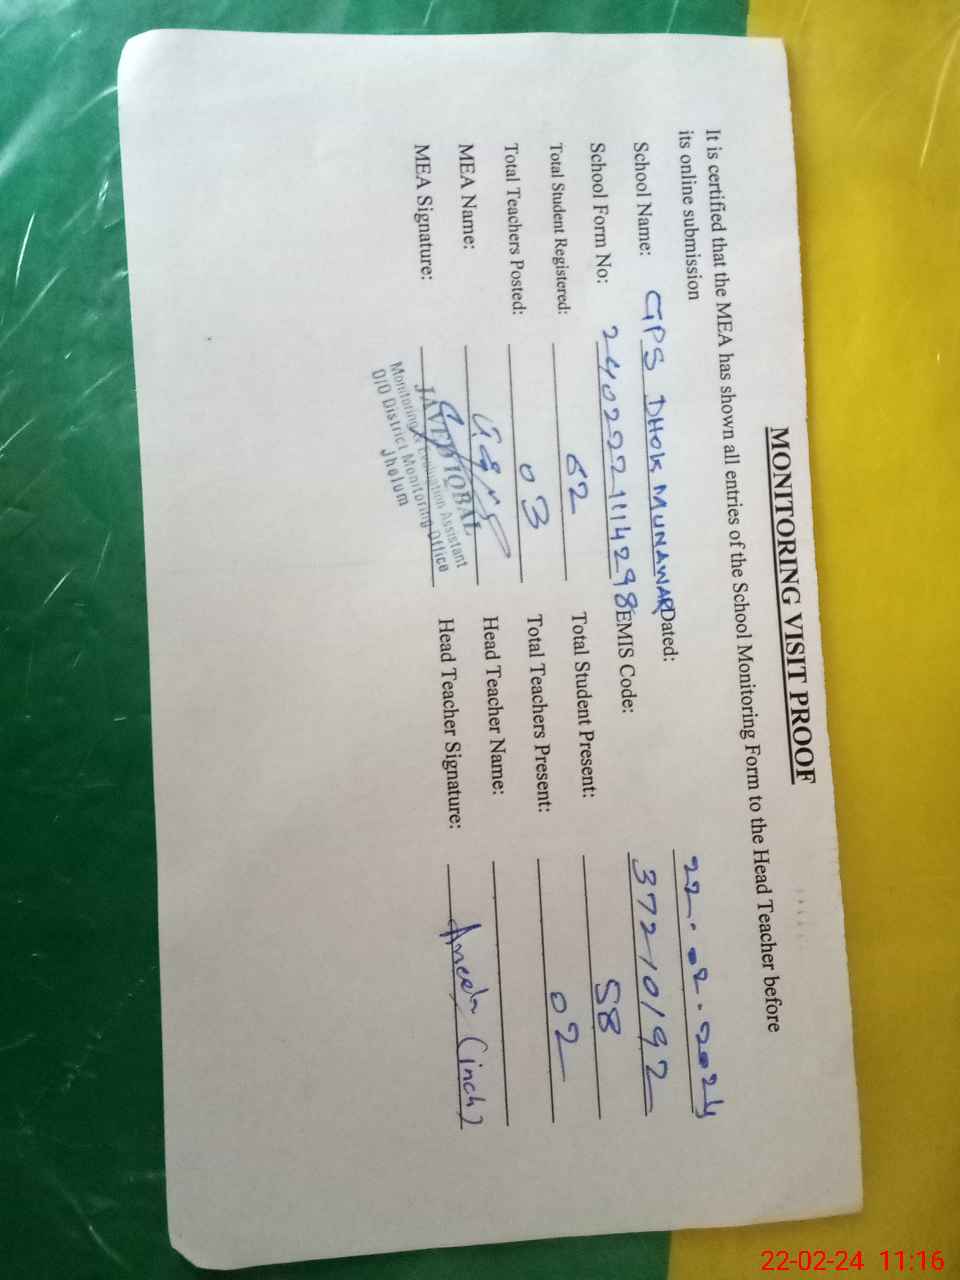 MONITORING VISIT PROOF
It is certified that the MEA has shown all entries of the School Monitoring Form to the Head Teacher before
its online submission
School Name: GPS DHOK MUNAWAR Dated: 22.02.2024
School Form No: 2402221114298 EMIS Code: 37210192
Total Student Registered: 62 Total Student Present: 58
Total Teachers Posted: 03 Total Teachers Present: 02
MEA Name: Head Teacher Name:
MEA Signature: Head Teacher Signature: Aneela (inch)
JAVED IQBAL
Monitoring & Evaluation Assistant
O/O District Monitoring Office
Jhelum
22-02-24 11:16